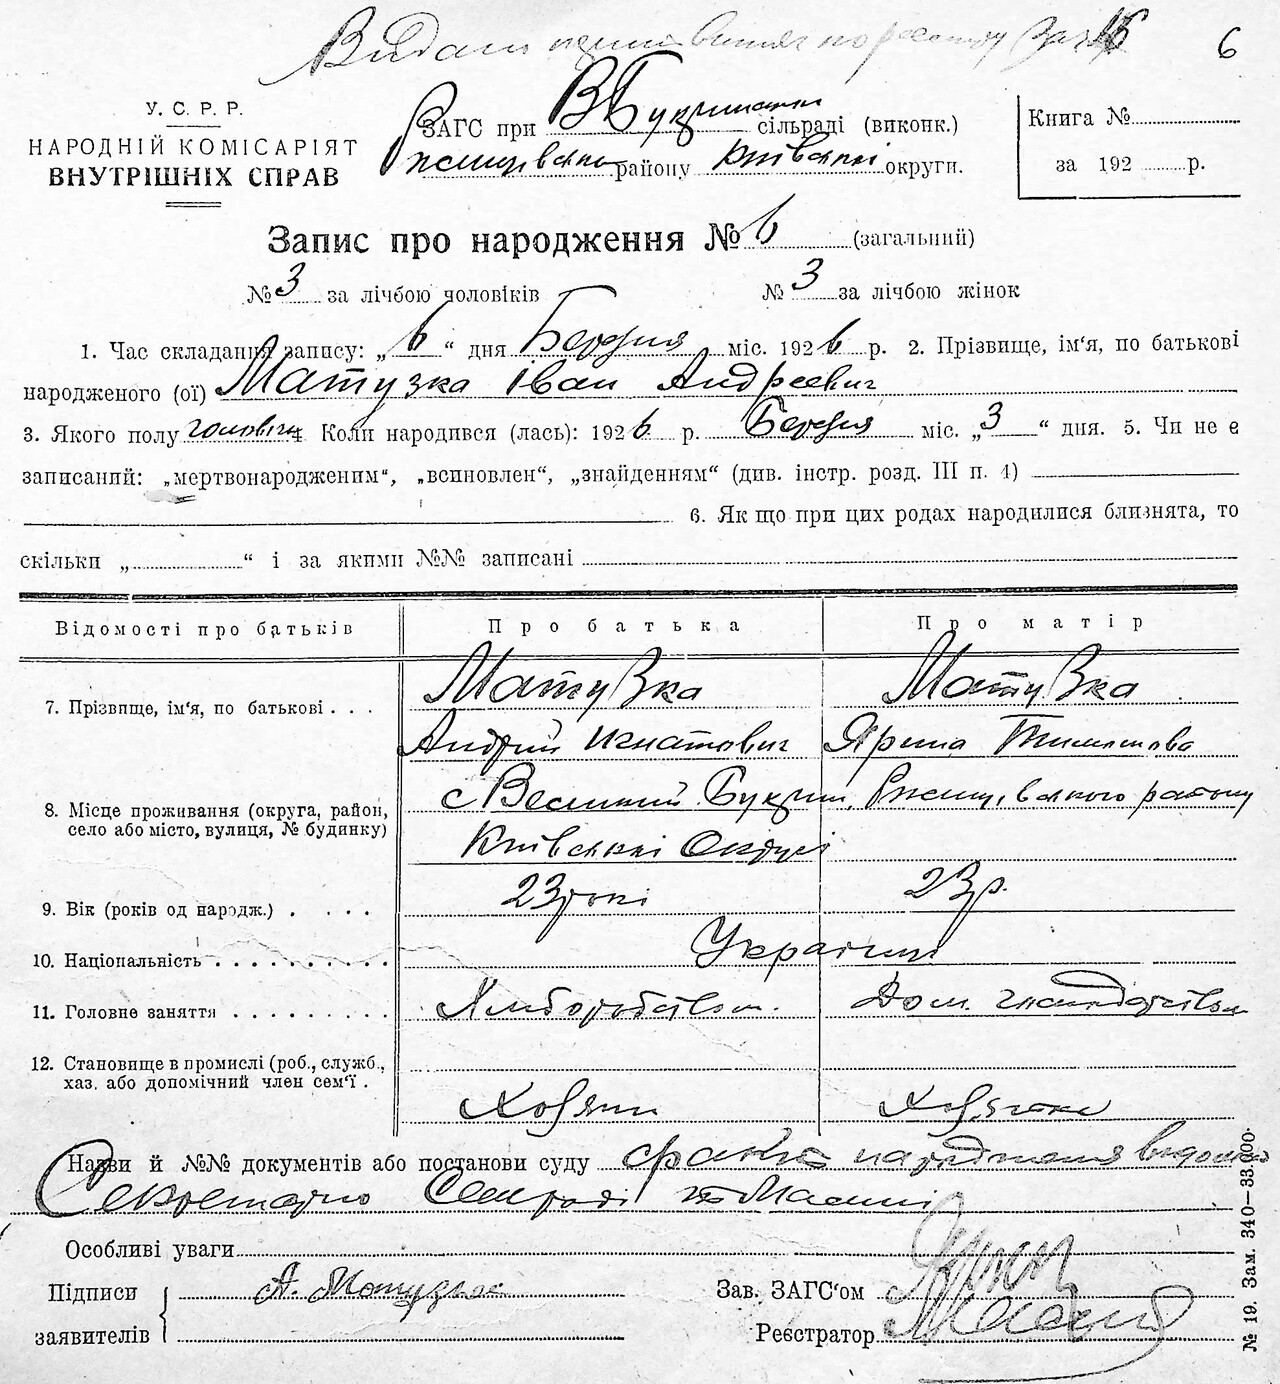 Видано 6
У.С.Р.Р.
НАРОДНІЙ КОМІСАРІЯТ
ВНУТРІШНІХ СПРАВ
ЗАГС при В Букринській сільраді (виконк.)
Ржищівського району Київської округи.
Книга №
за 192 р.
Запис про народження № 6 (загальний)
№ 3 за лічбою чоловіків № 3 за лічбою жінок
1. Час складання запису: „6“ дня Березня міс. 1926 р. 2. Прізвище, ім‘я, по батькові
народженого (ої) Матузка Іван Андреевич
3. Якого полу чоловіч 4 Коли народився (лась): 1926 р. Березня міс. „3“ дня. 5. Чи не є
записаний: „мертвонародженим“, „всиновлен“, „знайденням“ (див. інстр. розд. III п. 4)
6. Як що при цих родах народилися близнята, то
скільки „ “ і за якими №№ записані
Відомості про батьків Про батька Про матір
7. Прізвище, ім‘я, по батькові . . . Матузка Матузка
Андрій Игнатович Ярина Тимотова
8. Місце проживання (округа, район, село або місто, вулиця, № будинку) с Великий Букрин, Ржищівського району
Київської Округи
9. Вік (років од народж.) . . . . 23 роки 23 р.
10. Національність . . . . . . . . . . Україниці
11. Головне заняття . . . . . . . . . Хліборобством. Дом. господарством
12. Становище в промислі (роб., служб.,
хаз. або допомічний член сем‘ї . Хозяин Хозяйка
Назви й №№ документів або постанови суду факт народження відомий
Секретарю Сільради
Особливі уваги
Підписи А. Матузка Зав. ЗАГС‘ом
заявителів Реєстратор
№ 19. Зам. 340—33.000.